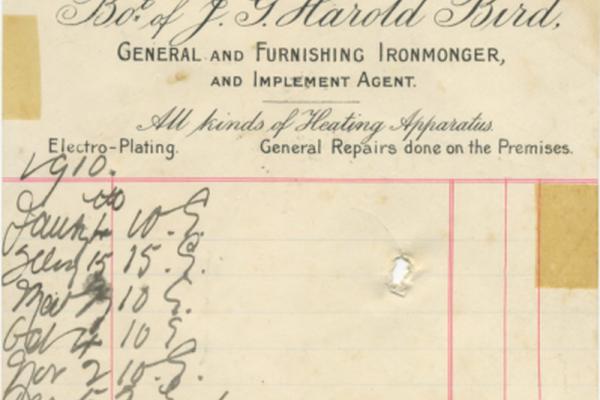 Bo.t of J. G. Harold Bird,
GENERAL AND FURNISHING IRONMONGER,
AND IMPLEMENT AGENT.
All kinds of Heating Apparatus.
Electro-Plating. General Repairs done on the Premises.
1910.
10. G.
15 15. G.
10 G.
Oct 4 10 G
Nov 2 10. G.